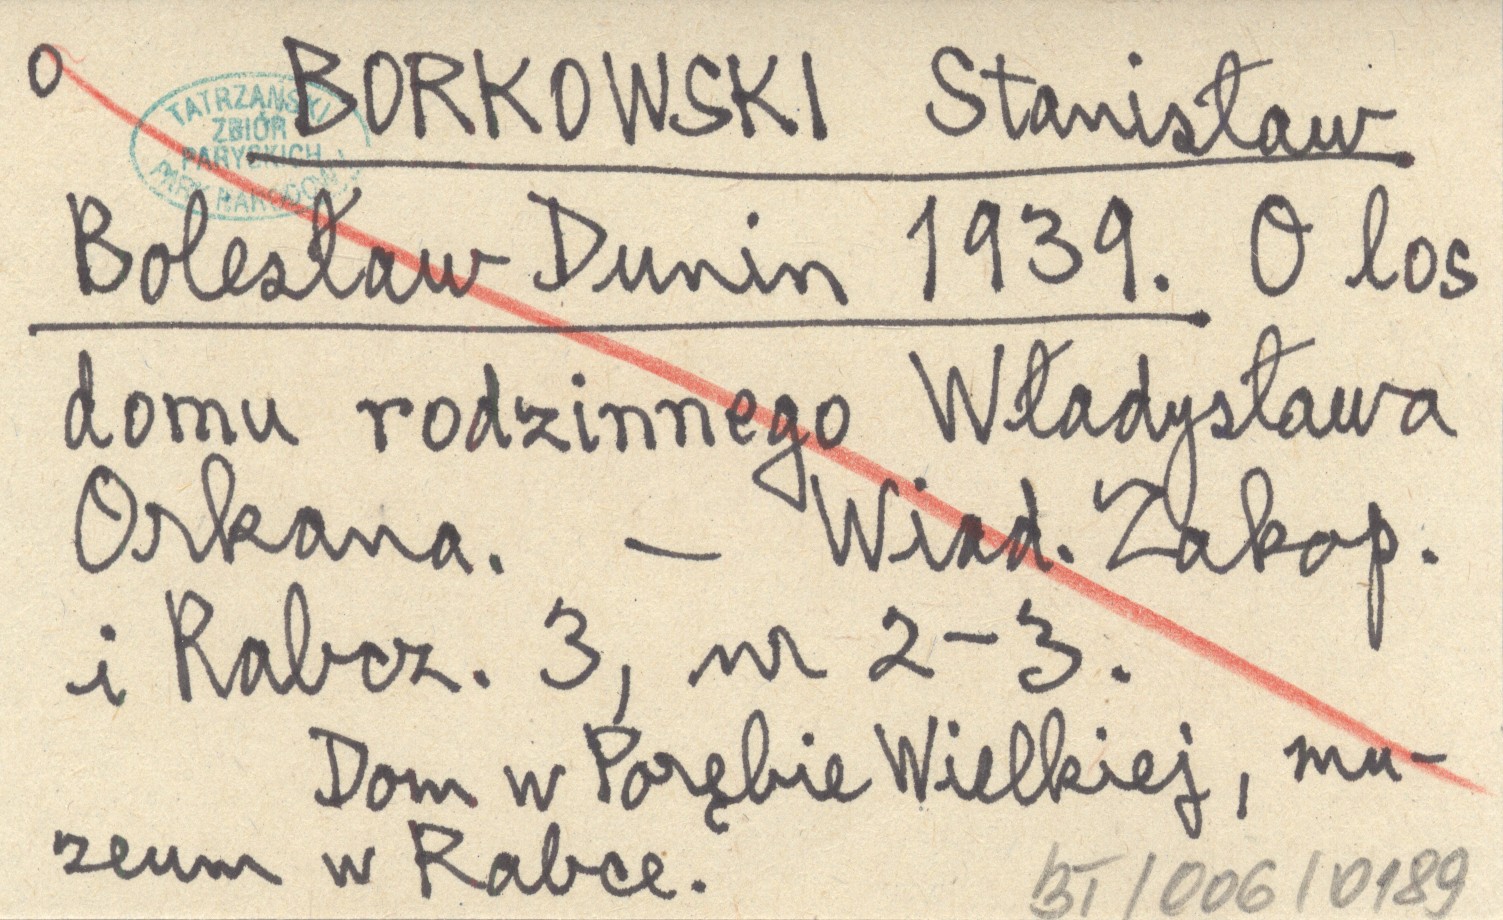 o BORKOWSKI Stanisław
TATRZAŃSKI
ZBIÓR
PARYSKICH
PARK NARODOWY
Bolesław Dunin 1939. O los
domu rodzinnego Władysława
Orkana. — Wiad. Zakop.
i Rabcz. 3, nr 2-3.
Dom w Porębie Wielkiej, mu-
zeum w Rabce.
BT/006/0189